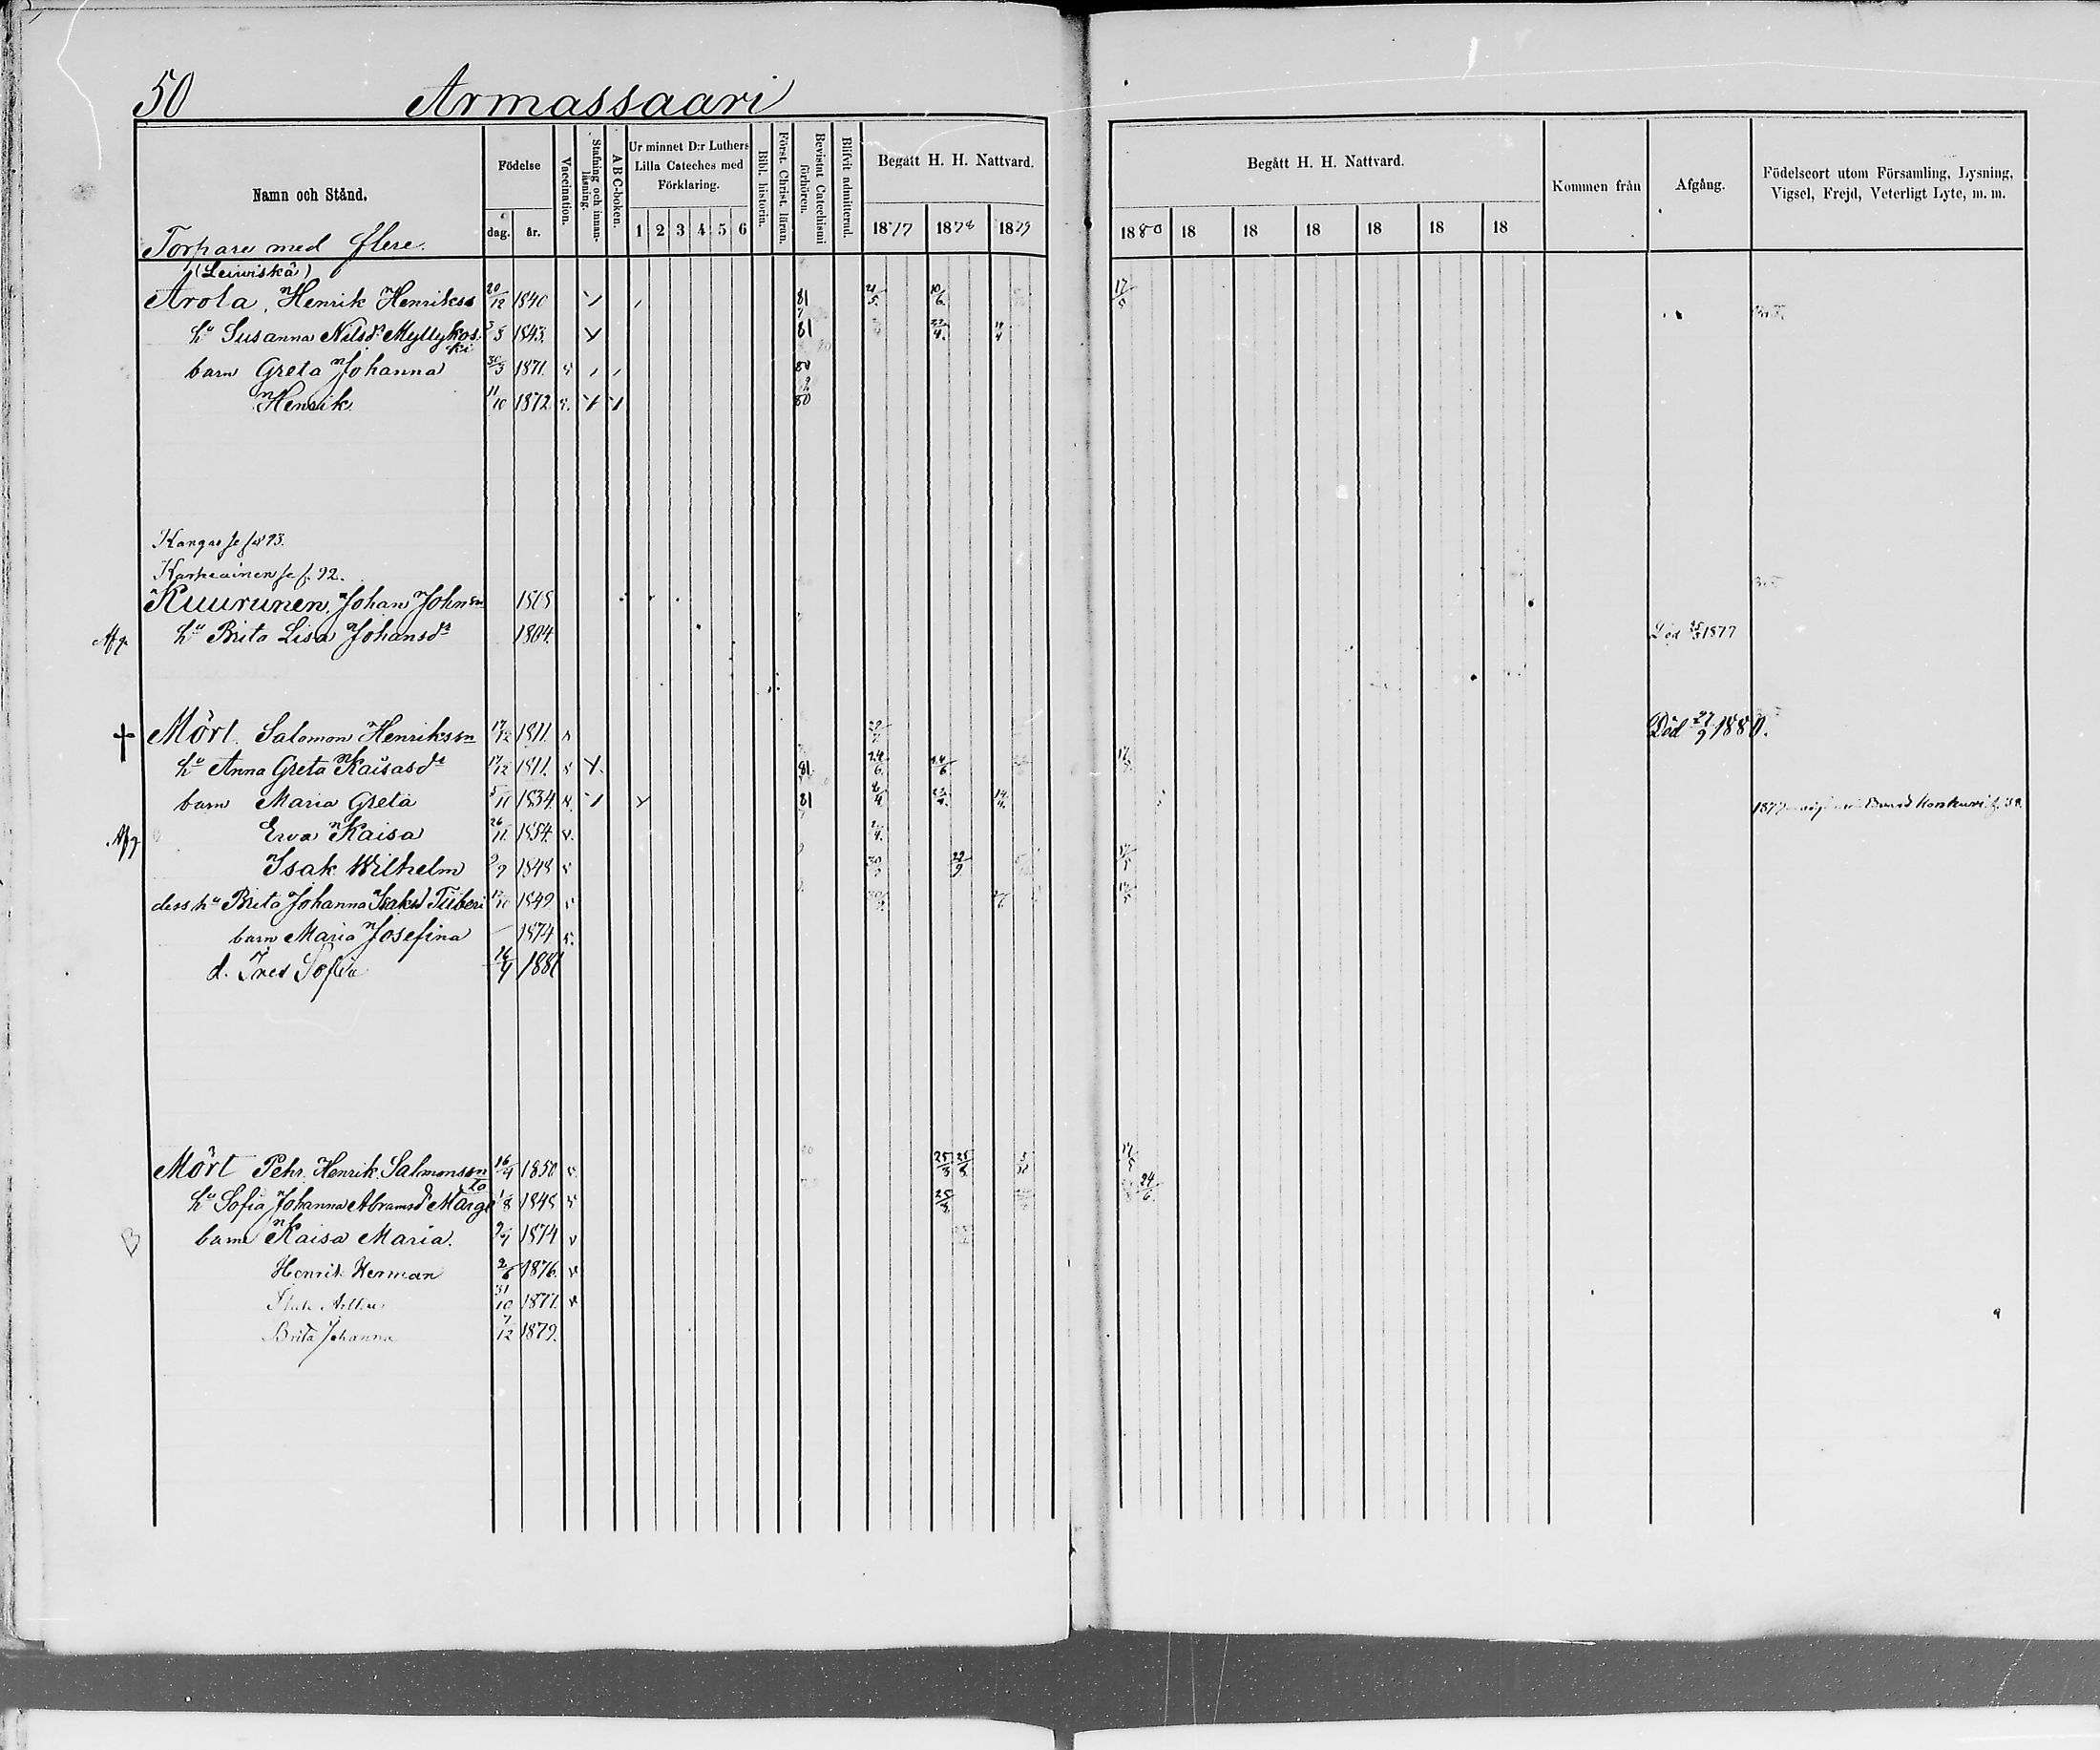 50 Armassaari
Namn och Stånd. Födelse Vaccination. Stafning och innanläsning. ABC-boken. Ur minnet D:r Luthers Lilla Cateches med Förklaring. Bibl. historia. Först. Christ. läran. Bevistat Catechismi förhören. Blifvit admitterad. Begått H. H. Nattvard. Begått H. H. Nattvard. Kommen från Afgång. Födelseort utom Församling, Lysning, Vigsel, Frejd, Veterligt Lyte, m. m.
dag. år. 1 2 3 4 5 6 1877 1878 1879 1880 18 18 18 18 18 18
Torpare med flere.
(Leiwiskä)
Arola, Henrik Henrikss 20/12 1840 81 21/5 10/6 17/5
hu Susanna Nilsdr Myllykoski 3/5 1843. 81 4
barn Greta Johanna 30/3 1871. 80
Henrik 11/10 1872 80
Kangas se fol 93.
Karhiainen se f. 92.
Kuurunen, Johan Johnsn 1808
Afg. hu Brita Lisa Johansdr 1804. Död 25/3 1877
† Mört Salomon Henrikssn 17/12 1811. Död 27/9 1880.
hu Anna Greta Kaisasdr 17/12 1811. 81 24/6 24/6
barn Maria Greta 5/11 1834. 81
Afg Ewa Kaisa 26/11 1854.
Isak Wilhelm 9/9 1848 29/9 17/5
dess hu Brita Johanna Isaksd Tiiberi 17/10 1849 17/5
barn Maria Josefina — 1874
d. Ines Sofia 26/4 1881
Mört Pehr Henrik Salmonssn 16/4 1850 25/3 25/3 17/5
hu Sofia Johanna Abramsd Margeta 1/8 1848 25/3 24/6
B barn Kaisa Maria. 9/7 1874
Henrik Herman 2/6 1876.
31/10 1877.
Brita Johanna 7/12 1879.